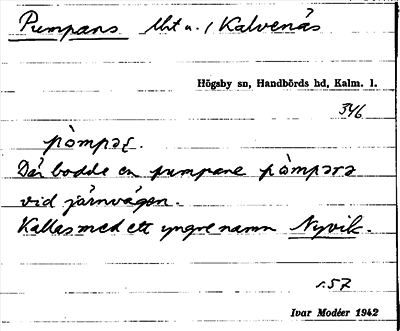 Pumpans lht u. / Kalvenäs
Högsby sn, Handbörds hd, Kalm. l.
346
pòmpəʈ.
Där bodde en pumpare pòmparə
vid järnvägen.
Kallas med ett yngre namn Nyvik.
s. 57
Ivar Modéer 1942